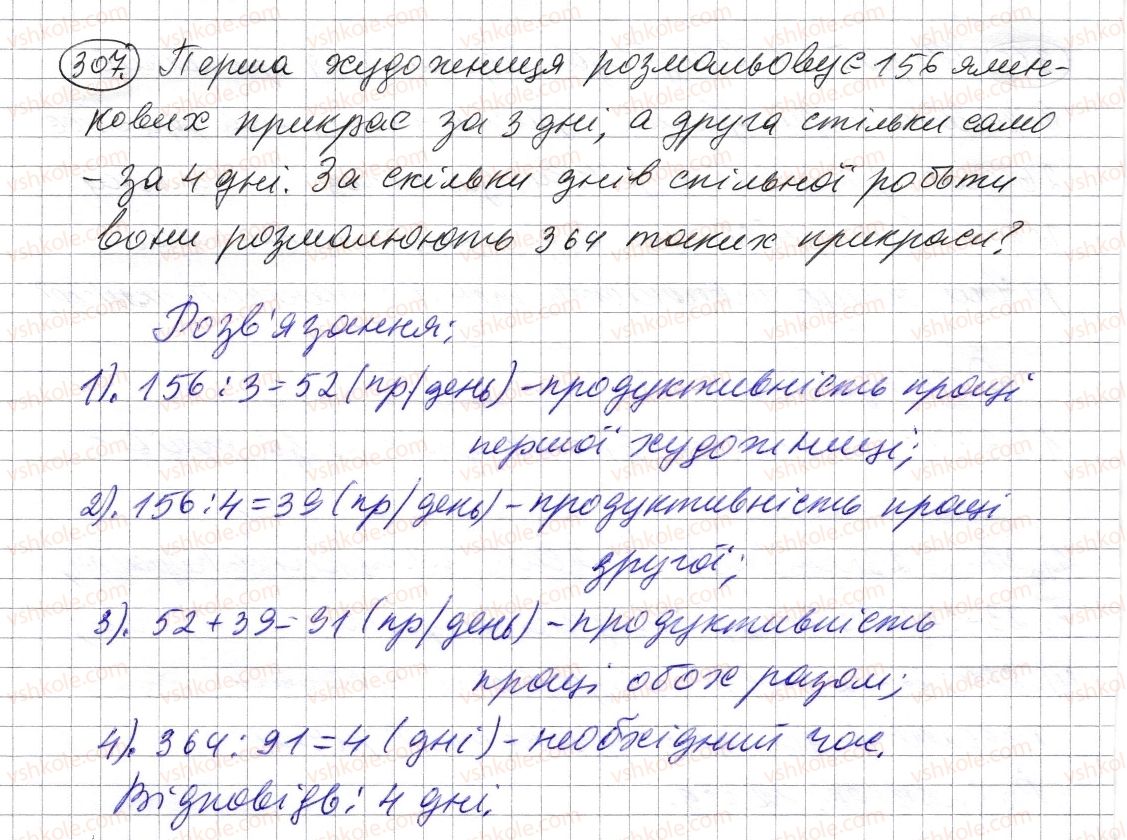 307. Перша художниця розмальовує 156 ялин-
кових прикрас за 3 дні, а друга стільки само
– за 4 дні. За скільки днів спільної роботи
вони розмалюють 364 таких прикраси?
Розв'язання:
1). 156 : 3 = 52 (пр/день) – продуктивність праці
першої художниці;
2). 156 : 4 = 39 (пр/день) – продуктивність праці
другої;
3). 52 + 39 = 91 (пр/день) – продуктивність
праці обох разом;
4). 364 : 91 = 4 (дні) – необхідний час.
Відповідь: 4 дні.